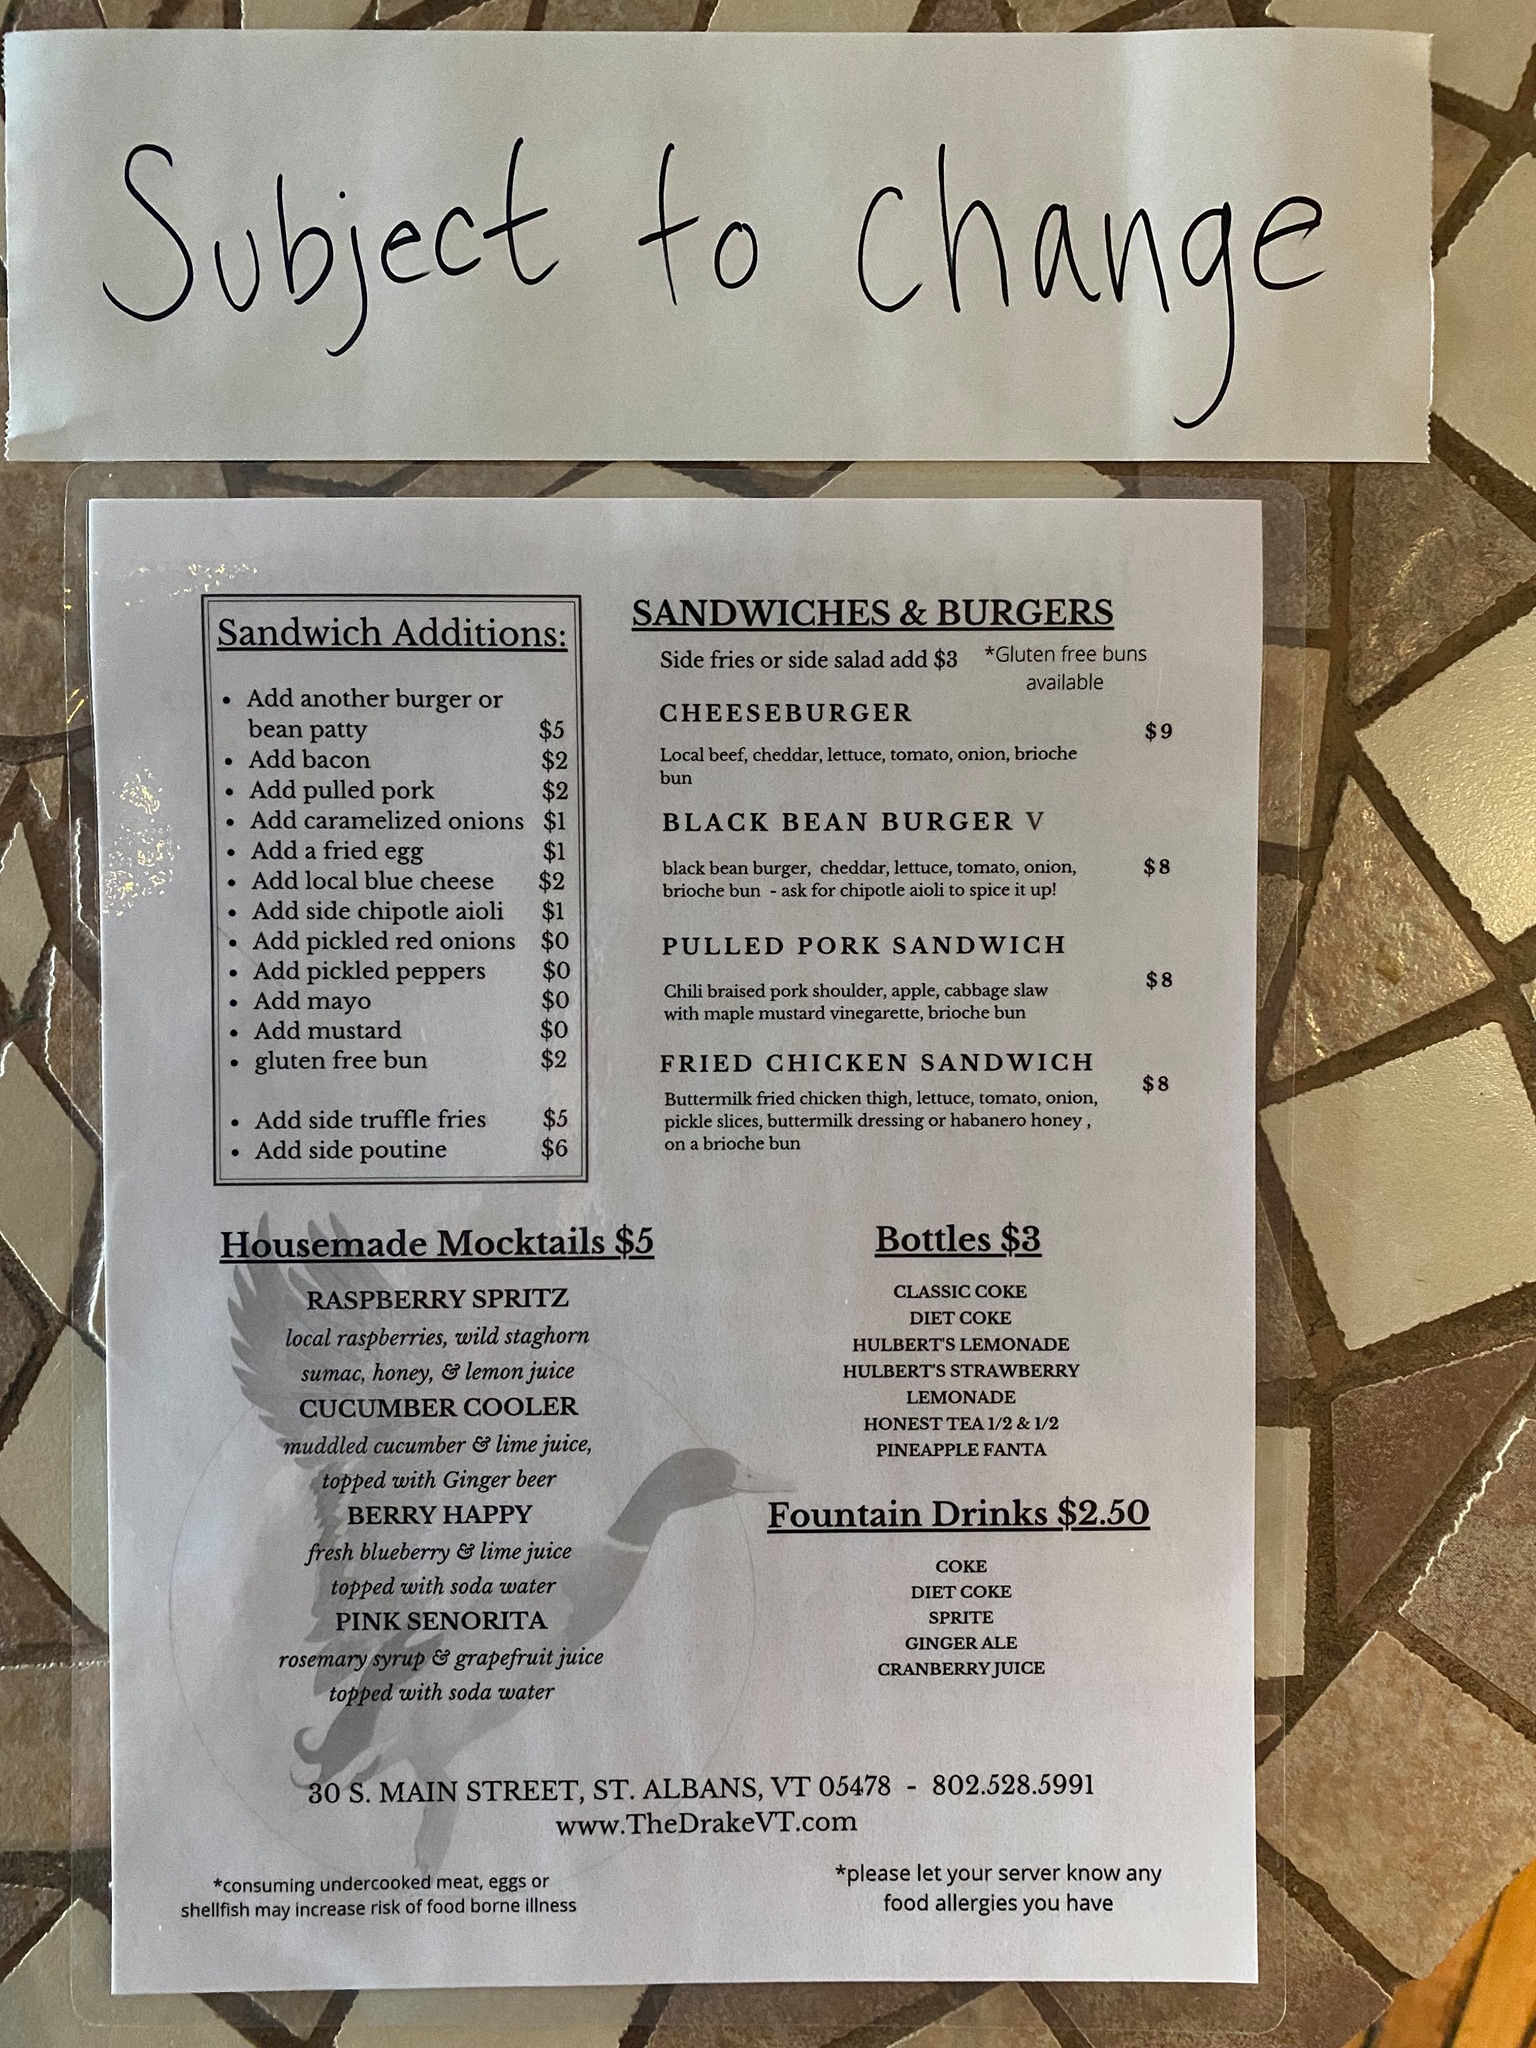 Subject to change
Sandwich Additions:
• Add another burger or
bean patty $5
• Add bacon $2
• Add pulled pork $2
• Add caramelized onions $1
• Add a fried egg $1
• Add local blue cheese $2
• Add side chipotle aioli $1
• Add pickled red onions $0
• Add pickled peppers $0
• Add mayo $0
• Add mustard $0
• gluten free bun $2
• Add side truffle fries $5
• Add side poutine $6
SANDWICHES & BURGERS
Side fries or side salad add $3
*Gluten free buns
available
CHEESEBURGER
$9
Local beef, cheddar, lettuce, tomato, onion, brioche
bun
BLACK BEAN BURGER V
black bean burger, cheddar, lettuce, tomato, onion, $8
brioche bun - ask for chipotle aioli to spice it up!
PULLED PORK SANDWICH
$8
Chili braised pork shoulder, apple, cabbage slaw
with maple mustard vinegarette, brioche bun
FRIED CHICKEN SANDWICH
$8
Buttermilk fried chicken thigh, lettuce, tomato, onion,
pickle slices, buttermilk dressing or habanero honey ,
on a brioche bun
Housemade Mocktails $5
RASPBERRY SPRITZ
local raspberries, wild staghorn
sumac, honey, & lemon juice
CUCUMBER COOLER
muddled cucumber & lime juice,
topped with Ginger beer
BERRY HAPPY
fresh blueberry & lime juice
topped with soda water
PINK SENORITA
rosemary syrup & grapefruit juice
topped with soda water
Bottles $3
CLASSIC COKE
DIET COKE
HULBERT'S LEMONADE
HULBERT'S STRAWBERRY
LEMONADE
HONEST TEA 1/2 & 1/2
PINEAPPLE FANTA
Fountain Drinks $2.50
COKE
DIET COKE
SPRITE
GINGER ALE
CRANBERRY JUICE
30 S. MAIN STREET, ST. ALBANS, VT 05478 - 802.528.5991
www.TheDrakeVT.com
*consuming undercooked meat, eggs or
shellfish may increase risk of food borne illness
*please let your server know any
food allergies you have